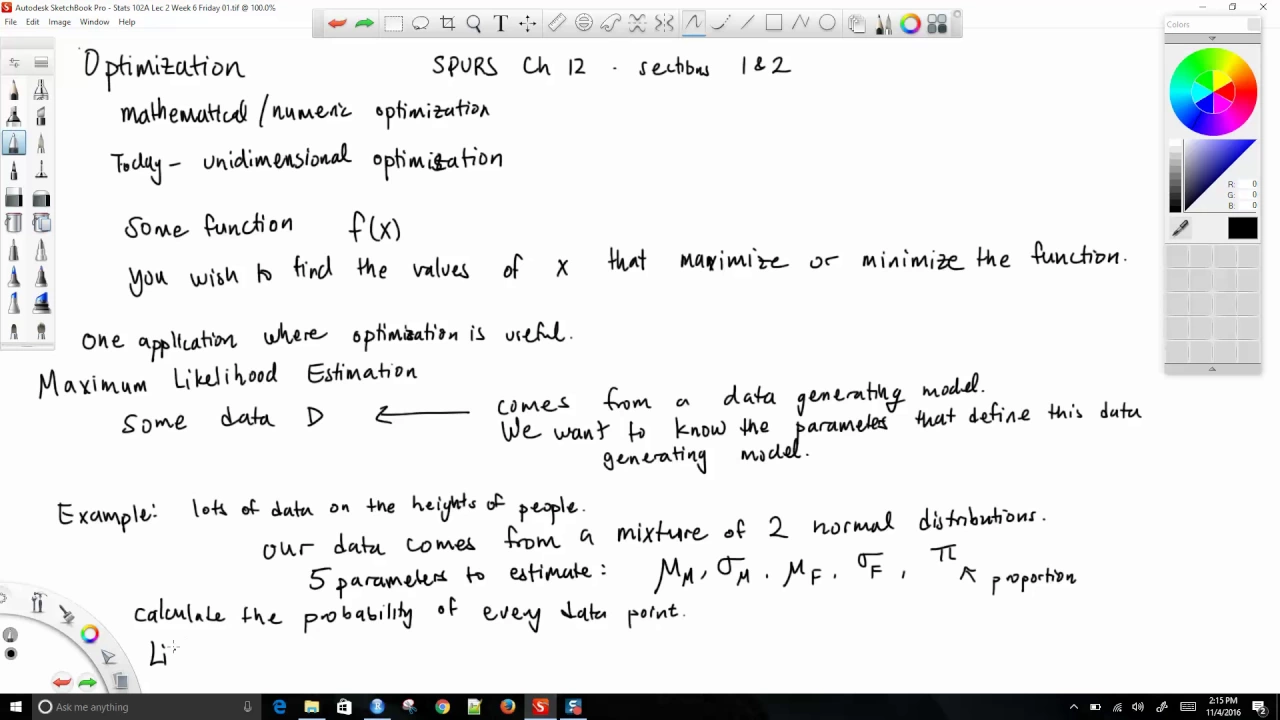 Autodesk SketchBook Pro - Stats 102A Lec 2 Week 6 Friday 01.tif @ 100.0%
File Edit Image Window Help
Colors
Optimization SPURS Ch 12 . sections 1 & 2
mathematical / numeric optimization
Today - unidimensional optimization
Some function f(x)
You wish to find the values of x that maximize or minimize the function.
R: 0
G: 0
B: 0
One application where optimization is useful.
Maximum Likelihood Estimation
Some data D ← comes from a data generating model.
We want to know the parameters that define this data
generating model.
Example: lots of data on the heights of people.
our data comes from a mixture of 2 normal distributions.
5 parameters to estimate: μM, σM, μF, σF, π
↖ proportion
Calculate the probability of every data point.
Li
Ask me anything
2:15 PM
11/4/2016
2